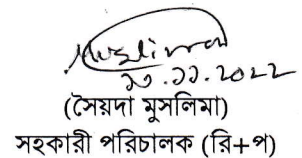 Muslima
২০.১১.২০২২
(সৈয়দা মুসলিমা)
সহকারী পরিচালক (রি+প)